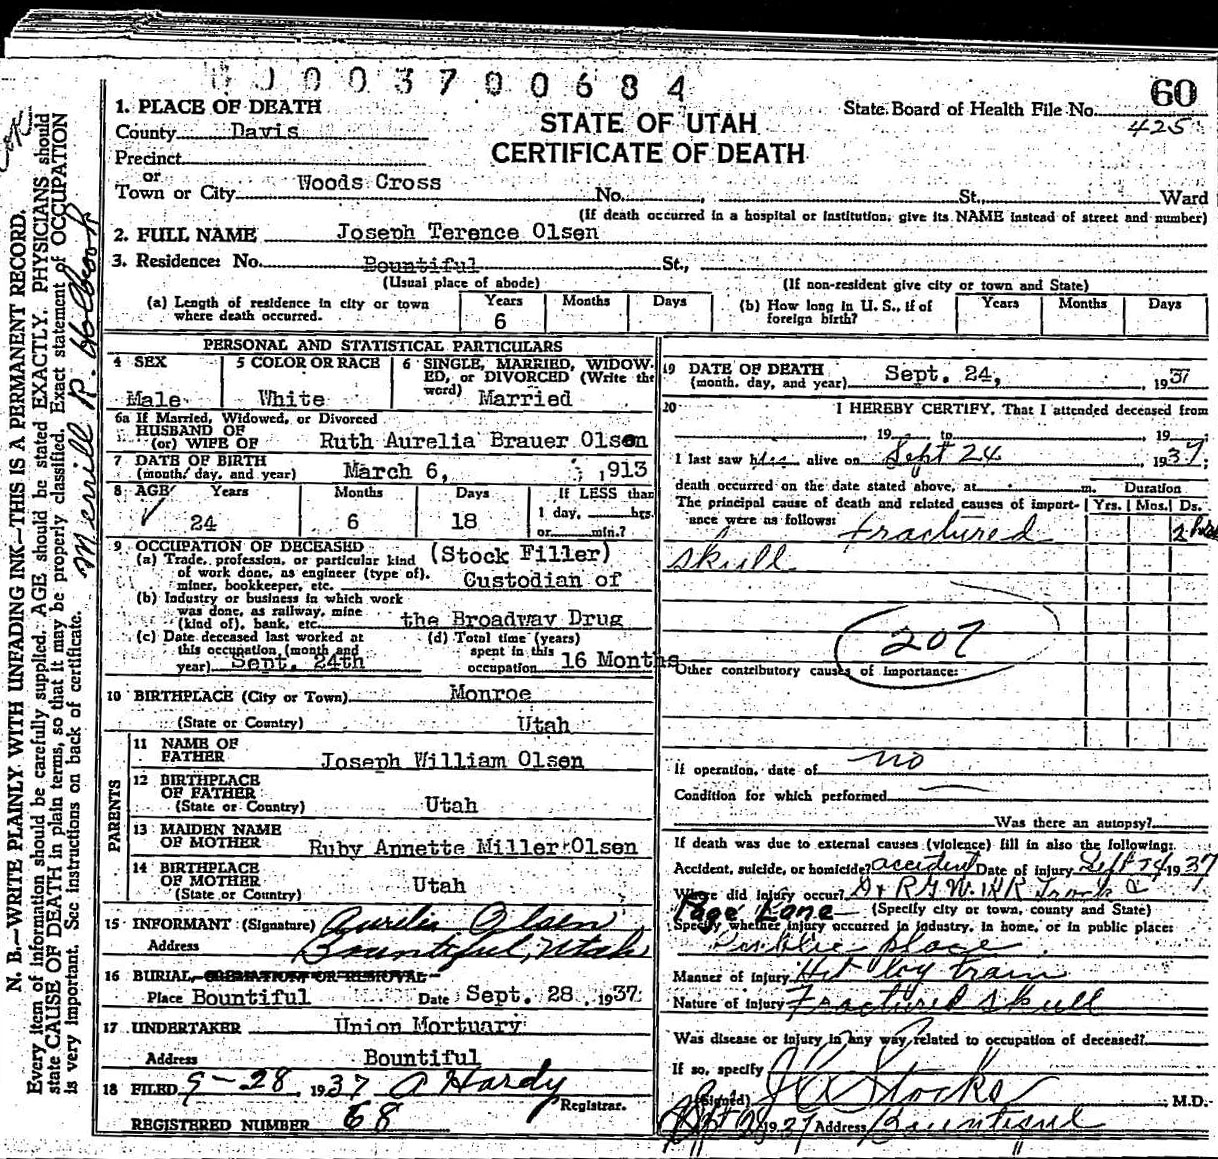 0 J 0 0 3 7 0 0 6 8 4
60
1. PLACE OF DEATH
State Board of Health File No.
425
County Davis
STATE OF UTAH
CERTIFICATE OF DEATH
Precinct
or
Town or City Woods Cross No. St., Ward
(If death occurred in a hospital or institution, give its NAME instead of street and number)
2. FULL NAME Joseph Terence Olsen
3. Residence: No. Bountiful St.,
(Usual place of abode) (If non-resident give city or town and State)
(a) Length of residence in city or town where death occurred. Years 6 Months Days
(b) How long in U. S., if of foreign birth? Years Months Days
PERSONAL AND STATISTICAL PARTICULARS
4 SEX Male
5 COLOR OR RACE White
6 SINGLE, MARRIED, WIDOWED, or DIVORCED (Write the word) Married
6a If Married, Widowed, or Divorced
HUSBAND OF
(or) WIFE OF Ruth Aurelia Brauer Olsen
7 DATE OF BIRTH
(month, day, and year) March 6, 1913
8 AGE Years Months Days If LESS than
24 6 18 1 day, hrs.
or min.?
9 OCCUPATION OF DECEASED (Stock Filler)
(a) Trade, profession, or particular kind
of work done, as engineer (type of).
miner, bookkeeper, etc. Custodian of
(b) Industry or business in which work
was done, as railway, mine
(kind of), bank, etc. the Broadway Drug
(c) Date deceased last worked at
this occupation (month and
year) Sept. 24th
(d) Total time (years)
spent in this
occupation 16 Months
10 BIRTHPLACE (City or Town) Monroe
(State or Country) Utah
PARENTS
11 NAME OF
FATHER Joseph William Olsen
12 BIRTHPLACE
OF FATHER
(State or Country) Utah
13 MAIDEN NAME
OF MOTHER Ruby Annette Miller Olsen
14 BIRTHPLACE
OF MOTHER
(State or Country) Utah
15 INFORMANT (Signature) Aurelia Olsen
Address Bountiful, Utah
16 BURIAL, CREMATION OR REMOVAL
Place Bountiful Date Sept. 28, 1937
17 UNDERTAKER Union Mortuary
Address Bountiful
18 FILED 9-28, 1937 A Hardy
Registrar.
REGISTERED NUMBER 68
19 DATE OF DEATH
(month, day, and year) Sept. 24, 1937
20 I HEREBY CERTIFY, That I attended deceased from
, 19 to , 19
I last saw him alive on Sept 24 1937;
death occurred on the date stated above, at m. Duration
The principal cause of death and related causes of importance were as follows: Yrs. Mos. Ds.
Fractured
skull
207
Other contributory causes of importance:
If operation, date of no
Condition for which performed
Was there an autopsy?
If death was due to external causes (violence) fill in also the following:
Accident, suicide, or homicide? accident Date of injury Sept 24 1937
Where did injury occur? D & R G W. RR Track &
Page Lane (Specify city or town, county and State)
Specify whether injury occurred in industry, in home, or in public place:
Public place
Manner of injury Hit by train
Nature of injury Fractured skull
Was disease or injury in any way related to occupation of deceased?
If so, specify
(Signed) Stocks M.D.
Sept 28 1937 Address Bountiful
N. B.—WRITE PLAINLY WITH UNFADING INK—THIS IS A PERMANENT RECORD.
Every item of information should be carefully supplied. AGE should be stated EXACTLY. PHYSICIANS should
state CAUSE OF DEATH in plain terms, so that it may be properly classified. Exact statement of OCCUPATION
is very important. See instructions on back of certificate.
Merrill R. Holbrook